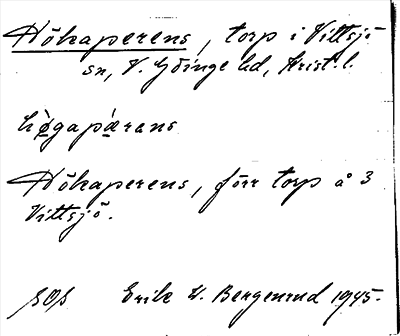 Hökaperens, torp i Vittsjö
sn, V. Göinge hd, Krist. l.
hø̀gapæ̀rans
Hökaperens, förr torp å 3
Vittsjö.
Erik W. Bergenrud 1945.